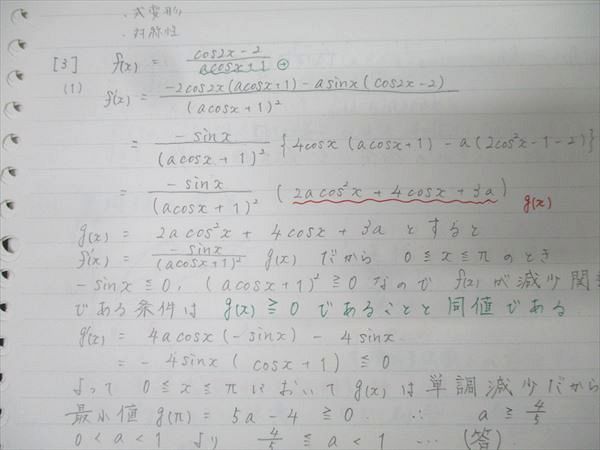 ・式変形
・対称性
[3] f(x) = \frac{cos2x-2}{acosx+1} ⊕
(1) f'(x) = \frac{-2cos2x(acosx+1)-asinx(cos2x-2)}{(acosx+1)^2}
= \frac{-sinx}{(acosx+1)^2} {4cosx(acosx+1)-a(2cos^2x-1-2)}
= \frac{-sinx}{(acosx+1)^2} (2acos^2x+4cosx+3a) g(x)
g(x) = 2acos^2x+4cosx+3a とすると
f'(x) = \frac{-sinx}{(acosx+1)^2} g(x) だから 0≦x≦π のとき
-sinx≦0, (acosx+1)^2≧0 なので f(x)が減少関
である条件は g(x)≧0 であることと同値である.
g'(x) = 4acosx(-sinx)-4sinx
= -4sinx(cosx+1)≦0
よって 0≦x≦π において g(x)は単調減少だから
最小値 g(π) = 5a-4≧0. ∴ a≧\frac{4}{5}
0<a<1 より \frac{4}{5}≦a<1 … (答)